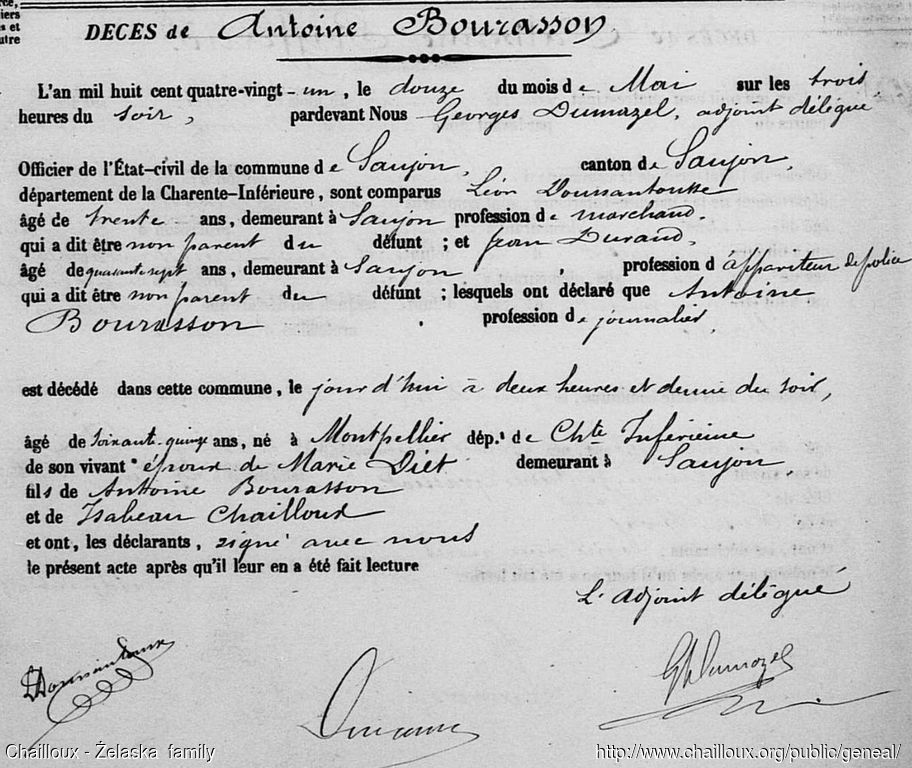 rce,
iers
s et
utre
DECES de Antoine Bourasson
L'an mil huit cent quatre-vingt-un, le douze du mois de Mai sur les trois
heures du soir, pardevant Nous Georges Dumazel, adjoint délégué
Officier de l'État-civil de la commune de Saujon, canton de Saujon,
département de la Charente-Inférieure, sont comparus Léon Doussantousse
âgé de trente ans, demeurant à Saujon profession de marchand.
qui a dit être non parent du défunt ; et jean Durand,
âgé de quarante sept ans, demeurant à Saujon, profession d'appariteur de police
qui a dit être non parent du défunt ; lesquels ont déclaré que Antoine
Bourasson profession de journalier,
est décédé dans cette commune, le jour d'hui à deux heures et demie du soir,
âgé de soixante-quinze ans, né à Montpellier dép.t de Chte Inférieure
de son vivant époux de Marie Diet demeurant à Saujon,
fils de Antoine Bourasson
et de Isabeau Chailloux
et ont, les déclarants, signé avec nous
le présent acte après qu'il leur en a été fait lecture
L'adjoint délégué
Durand
GDumazel
Chailloux - Żelaska family
http://www.chailloux.org/public/geneal/